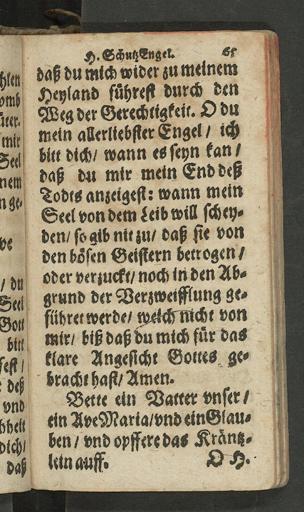 hlen
omb
üter.
mir
Seel
nem
n ge-
ve
/ du
Seel
Gott
bitt
fest /
deß
vnd
bbelt
dich /
daß
H. SchutzEngel. 65
daß du mich wider zu meinem
Heyland führest durch den
Weg der Gerechtigkeit. O du
mein allerliebster Engel / ich
bitt dich / wann es seyn kan /
daß du mir mein End deß
Todts anzeigest: wann mein
Seel von dem Leib will schey-
den / so gib nit zu / daß sie von
den bösen Geistern betrogen /
oder verzuckt / noch in den Ab-
grund der Verzweifflung ge-
führet werde / weich nicht von
mir / biß daß du mich für das
klare Angesicht Gottes ge-
bracht hast / Amen.
Bette ein Vatter vnser /
ein Ave Maria / vnd ein Glau-
ben / vnd opffere das Kräntz-
lein auff. O H.